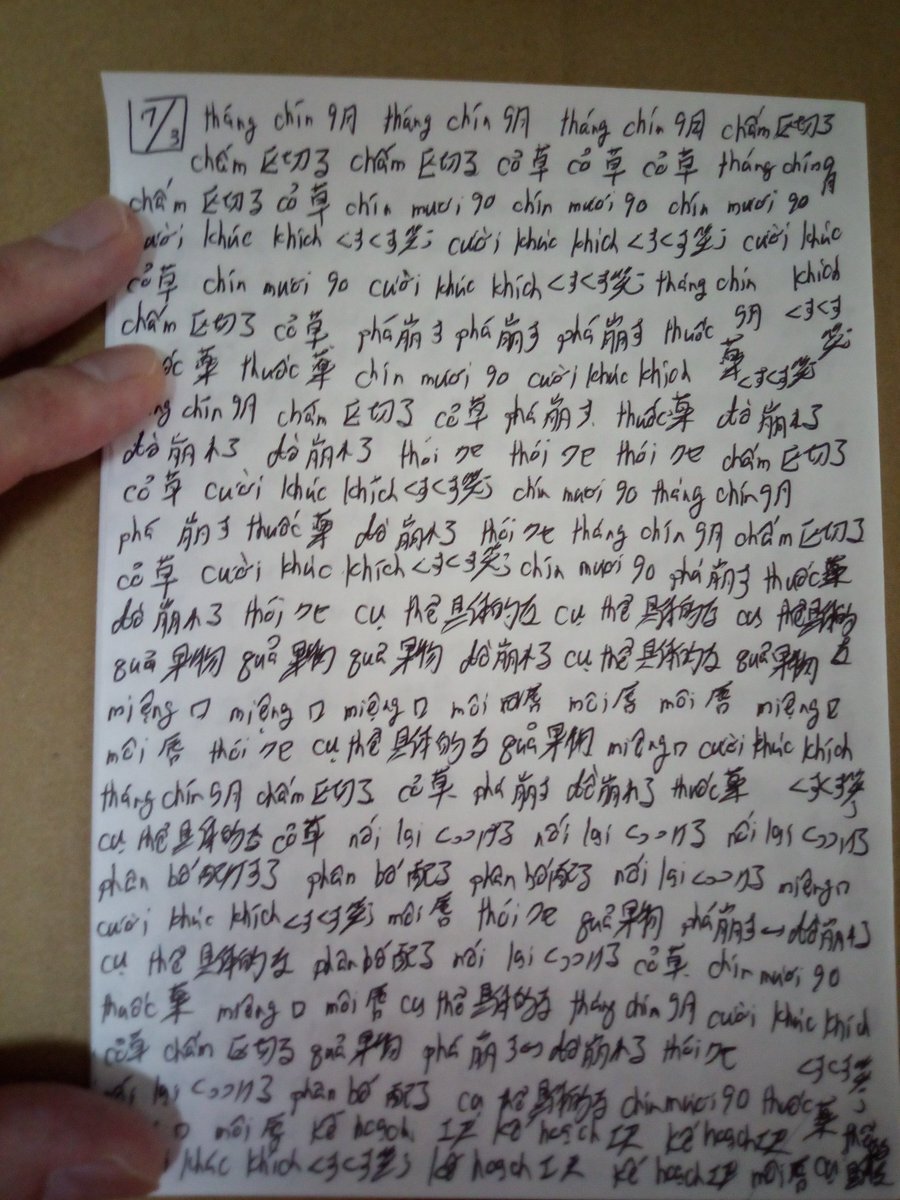 7/3 tháng chín 9月 tháng chín 9月 tháng chín 9月 chấm 区切る
chấm 区切る chấm 区切る cỏ 草 cỏ 草 cỏ 草 tháng chín 9月
chấm 区切る cỏ 草 chín mươi 90 chín mươi 90 chín mươi 90
cười khúc khích くすくす笑う cười khúc khích くすくす笑う cười khúc
cỏ 草 chín mươi 90 cười khúc khích くすくす笑う tháng chín khích
chấm 区切る cỏ 草 phá 崩す phá 崩す phá 崩す thuốc 9月 くすくす
笑う
ốc 薬 thuốc 薬 chín mươi 90 cười khúc khích 薬 くすくす笑う
ng chín 9月 chấm 区切る cỏ 草 phá 崩す thuốc 薬 đổ 崩れる
đổ 崩れる đổ 崩れる thói クセ thói クセ thói クセ chấm 区切る
cỏ 草 cười khúc khích くすくす笑う chín mươi 90 tháng chín 9月
phá 崩す thuốc 薬 đổ 崩れる thói クセ tháng chín 9月 chấm 区切る
cỏ 草 cười khúc khích くすくす笑う chín mươi 90 phá 崩す thuốc 薬
đổ 崩れる thói クセ cụ thể 具体的な cụ thể 具体的な cụ thể 具体的
quả 果物 quả 果物 quả 果物 đổ 崩れる cụ thể 具体的な quả 果物 な
miệng 口 miệng 口 miệng 口 môi 唇 môi 唇 môi 唇 miệng 口
môi 唇 thói クセ cụ thể 具体的な quả 果物 miệng 口 cười khúc khích
tháng chín 9月 chấm 区切る cỏ 草 phá 崩す đổ 崩れる thuốc 薬 くすくす笑う
cụ thể 具体的な cỏ 草 nối lại くっつける nối lại くっつける nối lại くっつける
phân bố 配る phân bố 配る phân bố 配る nối lại くっつける miệng 口
cười khúc khích くすくす笑う môi 唇 thói クセ quả 果物 phá 崩す ↔ đổ 崩れる
cụ thể 具体的な phân bố 配る nối lại くっつける cỏ 草 chín mươi 90
thuốc 薬 miệng 口 môi 唇 cụ thể 具体的な tháng chín 9月 cười khúc khích
cỏ 草 chấm 区切る quả 果物 phá 崩す ↔ đổ 崩れる thói クセ くすくす笑う
lại くっつける phân bố 配る cụ thể 具体的な chín mươi 90 thuốc 薬
口 môi 唇 kế hoạch 工程 kế hoạch 工程 kế hoạch 工程
khúc khích くすくす笑う kế hoạch 工程 kế hoạch 工程 môi 唇 cụ thể